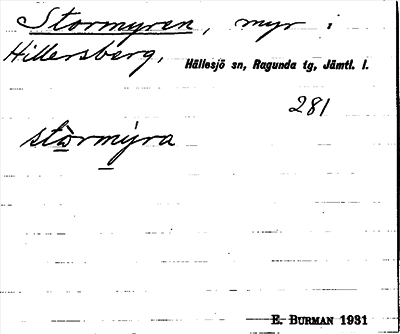 Stormyren, myr i
Hillersberg, Hällesjö sn, Ragunda tg, Jämtl. l.
281
stòrmýra
E. BURMAN 1931